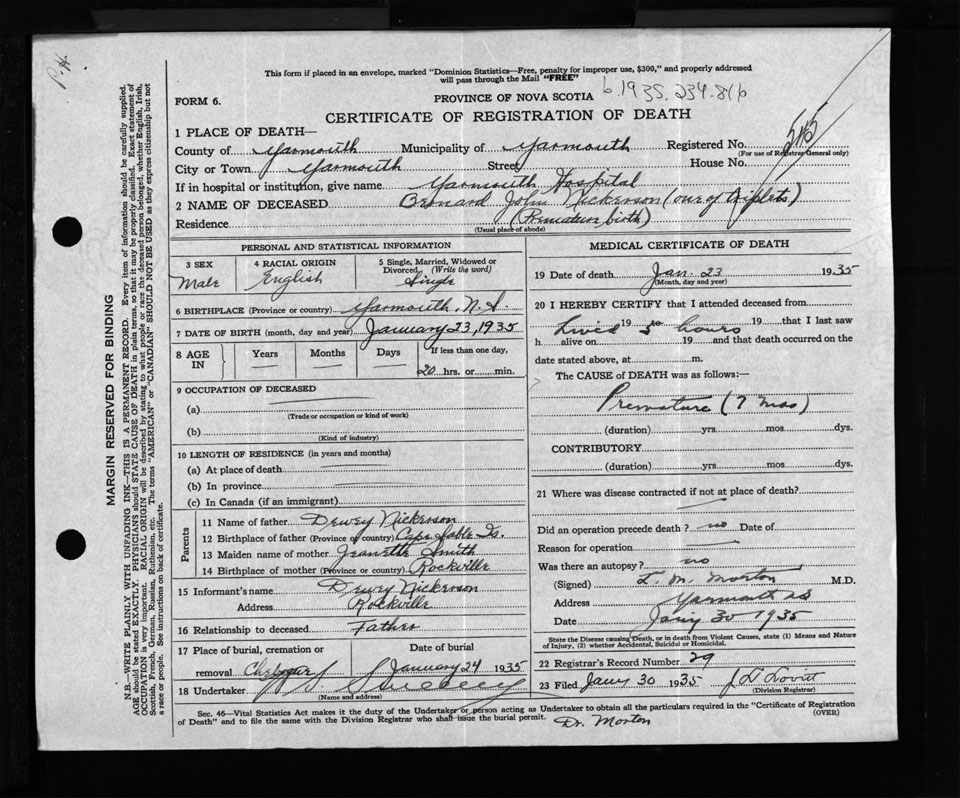 This form if placed in an envelope, marked "Dominion Statistics—Free, penalty for improper use, $300," and properly addressed
will pass through the Mail "FREE"
FORM 6.
PROVINCE OF NOVA SCOTIA
b.1935.
CERTIFICATE OF REGISTRATION OF DEATH
1 PLACE OF DEATH—
County of Yarmouth Municipality of Yarmouth Registered No.
(For use of Registrar General only)
City or Town Yarmouth Street House No.
If in hospital or institution, give name Yarmouth Hospital
2 NAME OF DECEASED Bernard John Nickerson (one of triplets)
Residence (Premature birth)
(Usual place of abode)
MARGIN RESERVED FOR BINDING
N.B.—WRITE PLAINLY WITH UNFADING INK—THIS IS A PERMANENT RECORD. Every item of information should be carefully supplied.
AGE should be stated EXACTLY. PHYSICIANS should STATE CAUSE OF DEATH in plain terms, so that it may be properly classified. Exact statement of
OCCUPATION is very important. RACIAL ORIGIN will be described by stating to what people or race the deceased person belonged, whether English, Irish,
Scottish, French, German, Russian, Ruthenian, etc. The terms "AMERICAN" or "CANADIAN" SHOULD NOT BE USED as they express citizenship but not
a race or people. See instructions on back of certificate.
PERSONAL AND STATISTICAL INFORMATION
3 SEX
Male
4 RACIAL ORIGIN
English
5 Single, Married, Widowed or
Divorced, (Write the word)
Single
6 BIRTHPLACE (Province or country) Yarmouth, N.S.
7 DATE OF BIRTH (month, day and year) January 23, 1935
8 AGE
IN
Years
Months
Days
If less than one day,
20 hrs. or min.
9 OCCUPATION OF DECEASED
(a)
(Trade or occupation or kind of work)
(b)
(Kind of industry)
10 LENGTH OF RESIDENCE (in years and months)
(a) At place of death
(b) In province
(c) In Canada (if an immigrant)
Parents
11 Name of father Dewey Nickerson
12 Birthplace of father (Province or country) Cape Sable Is.
13 Maiden name of mother Jeanette Smith
14 Birthplace of mother (Province or country) Rockville
15 Informant's name Dewey Nickerson
Address Rockville
16 Relationship to deceased Father
17 Place of burial, cremation or
removal
Date of burial
January 24 1935
18 Undertaker
(Name and address)
MEDICAL CERTIFICATE OF DEATH
19 Date of death Jan. 23 1935
(Month, day and year)
20 I HEREBY CERTIFY that I attended deceased from
Lived 19 hours 19 that I last saw
h alive on 19 and that death occurred on the
date stated above, at m.
The CAUSE of DEATH was as follows:—
Premature (7 mos)
(duration) yrs mos dys.
CONTRIBUTORY
(duration) yrs mos dys.
21 Where was disease contracted if not at place of death?
Did an operation precede death? no Date of
Reason for operation
Was there an autopsy? no
(Signed) L. M. Morton M.D.
Address Yarmouth NS
Date Jany 30 1935
State the Disease causing Death, or in death from Violent Causes, state (1) Means and Nature
of Injury, (2) whether Accidental, Suicidal or Homicidal.
22 Registrar's Record Number 29
23 Filed Jany 30 1935 J D Lovitt
(Division Registrar)
Sec. 46—Vital Statistics Act makes it the duty of the Undertaker or person acting as Undertaker to obtain all the particulars required in the "Certificate of Registration
of Death" and to file the same with the Division Registrar who shall issue the burial permit.
(OVER)
Dr. Morton